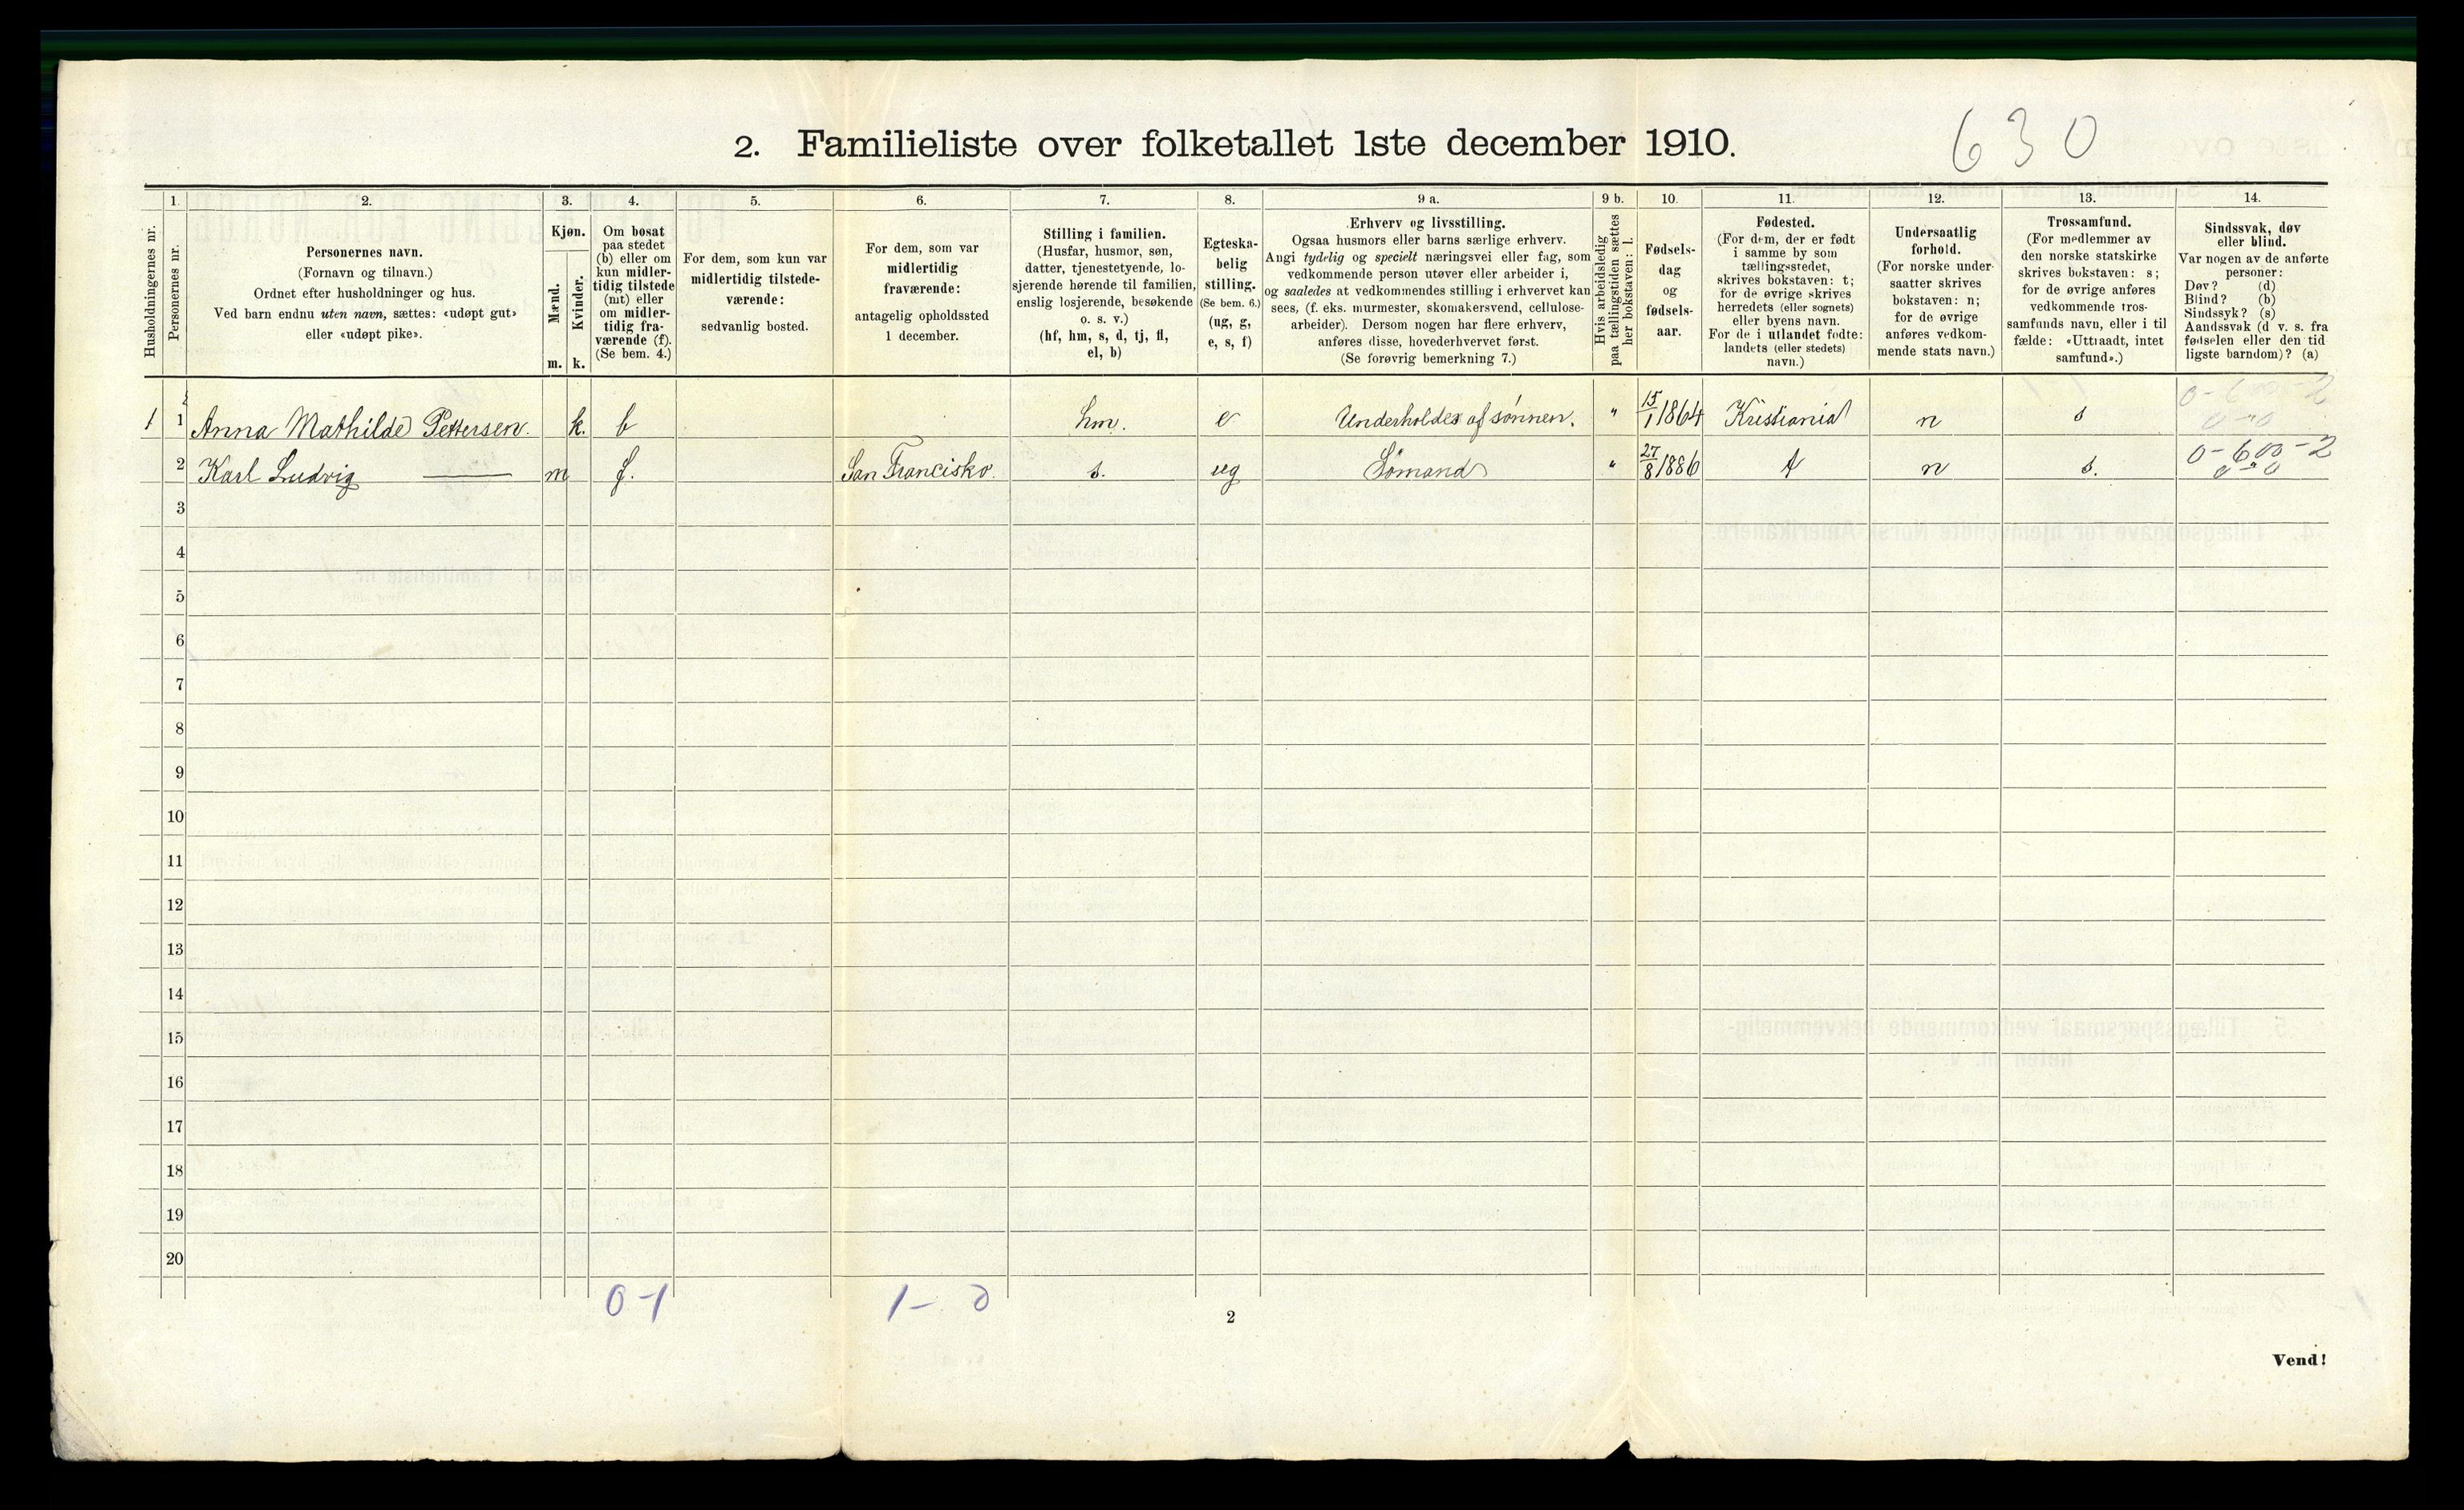 630
2. Familieliste over folketallet 1ste december 1910.
Husholdningernes nr.
1.
Personernes nr.
2.
Personernes navn.
(Fornavn og tilnavn.)
Ordnet efter husholdninger og hus.
Ved barn endnu uten navn, sættes: «udøpt gut»
eller «udøpt pike».
3.
Kjøn.
Mænd.
m.
Kvinder.
k.
4.
Om bosat
paa stedet
(b) eller om
kun midler-
tidig tilstede
(mt) eller
om midler-
tidig fra-
værende (f).
(Se bem. 4.)
5.
For dem, som kun var
midlertidig tilstede-
værende:
sedvanlig bosted.
6.
For dem, som var
midlertidig
fraværende:
antagelig opholdssted
1 december.
7.
Stilling i familien.
(Husfar, husmor, søn,
datter, tjenestetyende, lo-
sjerende hørende til familien,
enslig losjerende, besøkende
o. s. v.)
(hf, hm, s, d, tj, fl,
el, b)
8.
Egteska-
belig
stilling.
(Se bem. 6.)
(ug, g,
e, s, f)
9 a.
Erhverv og livsstilling.
Ogsaa husmors eller barns særlige erhverv.
Angi tydelig og specielt næringsvei eller fag, som
vedkommende person utøver eller arbeider i,
og saaledes at vedkommendes stilling i erhvervet kan
sees, (f. eks. murmester, skomakersvend, cellulose-
arbeider). Dersom nogen har flere erhverv,
anføres disse, hovederhvervet først.
(Se forøvrig bemerkning 7.)
9 b.
Hvis arbeidsledig
paa tællingstiden sættes
her bokstaven: l.
10.
Fødsels-
dag
og
fødsels-
aar.
11.
Fødested.
(For dem, der er født
i samme by som
tællingsstedet,
skrives bokstaven: t;
for de øvrige skrives
herredets (eller sognets)
eller byens navn.
For de i utlandet fødte:
landets (eller stedets)
navn.)
12.
Undersaatlig
forhold.
(For norske under-
saatter skrives
bokstaven: n;
for de øvrige
anføres vedkom-
mende stats navn.)
13.
Trossamfund.
(For medlemmer av
den norske statskirke
skrives bokstaven: s;
for de øvrige anføres
vedkommende tros-
samfunds navn, eller i til
fælde: «Uttraadt, intet
samfund».)
14.
Sindssvak, døv
eller blind.
Var nogen av de anførte
personer:
Døv? (d)
Blind? (b)
Sindssyk? (s)
Aandssvak (d v. s. fra
fødselen eller den tid
ligste barndom)? (a)
1 1 Anna Mathilde Pettersen. k. b hm. e Underholdes af sønnen. " 15/1 1864 Kristiania n s
2 Karl Ludvig — m f. San Francisko. s. ug Sömand " 27/8 1886 t n s.
3
4
5
6
7
8
9
10
11
12
13
14
15
16
17
18
19
20
0-1 1-0
2
Vend!